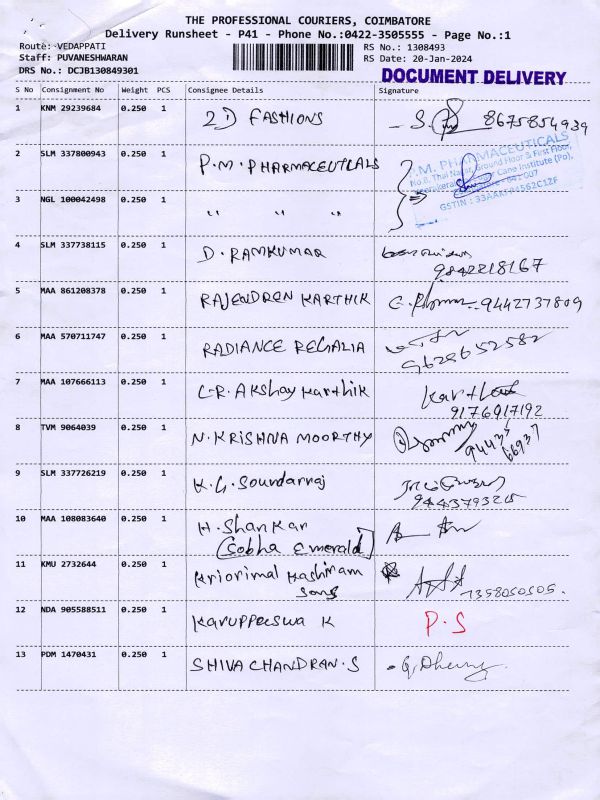 THE PROFESSIONAL COURIERS, COIMBATORE
Delivery Runsheet - P41 - Phone No.:0422-3505555 - Page No.:1
Route: VEDAPPATI
RS No.: 1308493
Staff: PUVANESHWARAN
RS Date: 20-Jan-2024
DRS No.: DCJB130849301
DOCUMENT DELIVERY
S No Consignment No Weight PCS Consignee Details Signature
1 KNM 29239684 0.250 1 2D FASHIONS 8675854939
2 SLM 337800943 0.250 1 P.M. PHARMACEUTICALS
P.M. PHARMACEUTICALS
No.8, Thai Nagar, Ground Floor & First Floor,
Cane Institute (Po),
GSTIN : 33AAKF
3 NGL 100042498 0.250 1 " " "
4 SLM 337738115 0.250 1 D. RAMKUMAR
9842218167
5 MAA 861208378 0.250 1 RAJENDREN KARTHIK 9442737809
6 MAA 570711747 0.250 1 RADIANCE REGALIA
9629652582
7 MAA 107666113 0.250 1 C.R. Akshay Karthik
9176917192
8 TVM 9064039 0.250 1 N. KRISHNA MOORTHY
94435
66937
9 SLM 337726219 0.250 1 K.G. Soundarraj
9443793215
10 MAA 108083640 0.250 1 H. Shankar
(Sobha Emerald)
11 KMU 2732644 0.250 1
Sons 7358050505.
12 NDA 905588511 0.250 1 Karuppeeswa K P.S
13 PDM 1470431 0.250 1 SHIVA CHANDRAN.S